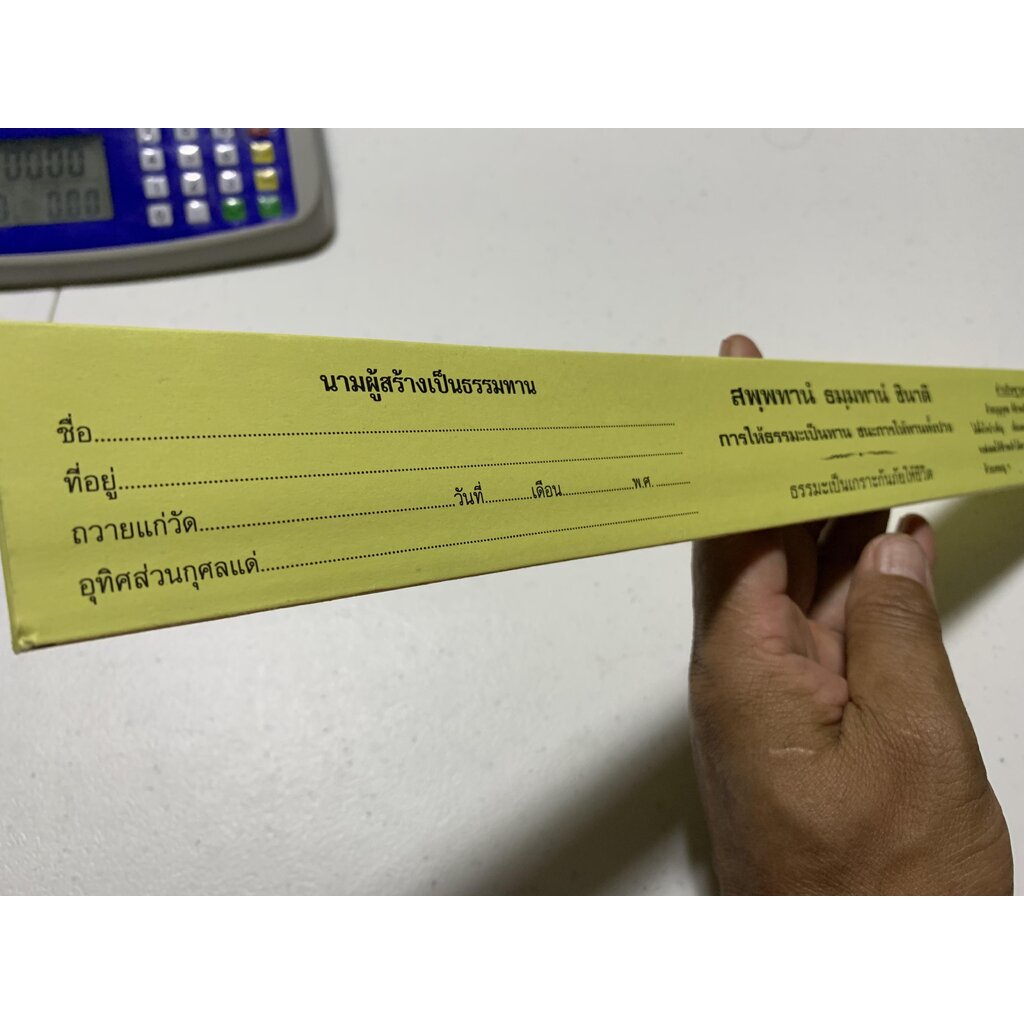 นามผู้สร้างเป็นธรรมทาน
ชื่อ........................................
ที่อยู่........................................
ถวายแก่วัด..............................วันที่............เดือน..................พ.ศ.............
อุทิศส่วนกุศลแด่........................................
สพฺพทานํ ธมฺมทานํ ชินาติ
การให้ธรรมะเป็นทาน ชนะการให้ทานทั้งปวง
ธรรมะเป็นเกราะกันภัยให้ชีวิต
0000
0.00